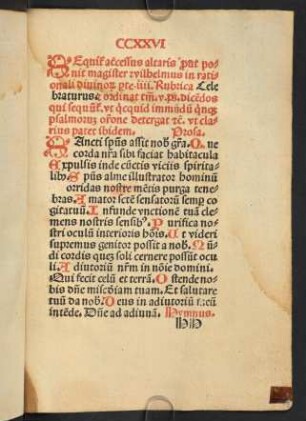 CCXXVI
Sequit᷑ accessus altaris put po
nit magister wilhelmus in rati
onali diuinoꝝ pte.iiii. Rubrica Cele
braturus
qui sequũt᷑. vt quicquid immũdũ
psalmoruʒ orõne detergat tc̃. vt cla
rius patet ibidem. Prosa.
Sancti spũs assit nob grã. Q ne
corda nr̃a sibi faciat habitacula
Expulsis inde cũctis viciis spirita
lib. Spũs alme illustrator hominũ
orridas nostre mẽtis purga tene
bras. Amator sctẽ sensatorũ semp co
gitatuũ. Infunde vnctionẽ tuã cle
mens nostris sensib. Purifica no
stri oculũ interioris hois. Ut videri
supremus genitor possit a nob. Mũ
di cordis queʒ soli cernere possũt ocu
li. Adiutoriũ nrm in nõie domini.
Qui fecit celũ et terrã. Ostende no
bis dñe mĩscdiam tuam. Et salutare
tuũ da nob. Deus in adiutoriũ
intẽde. Dñe ad adiuuã. Hymnus.